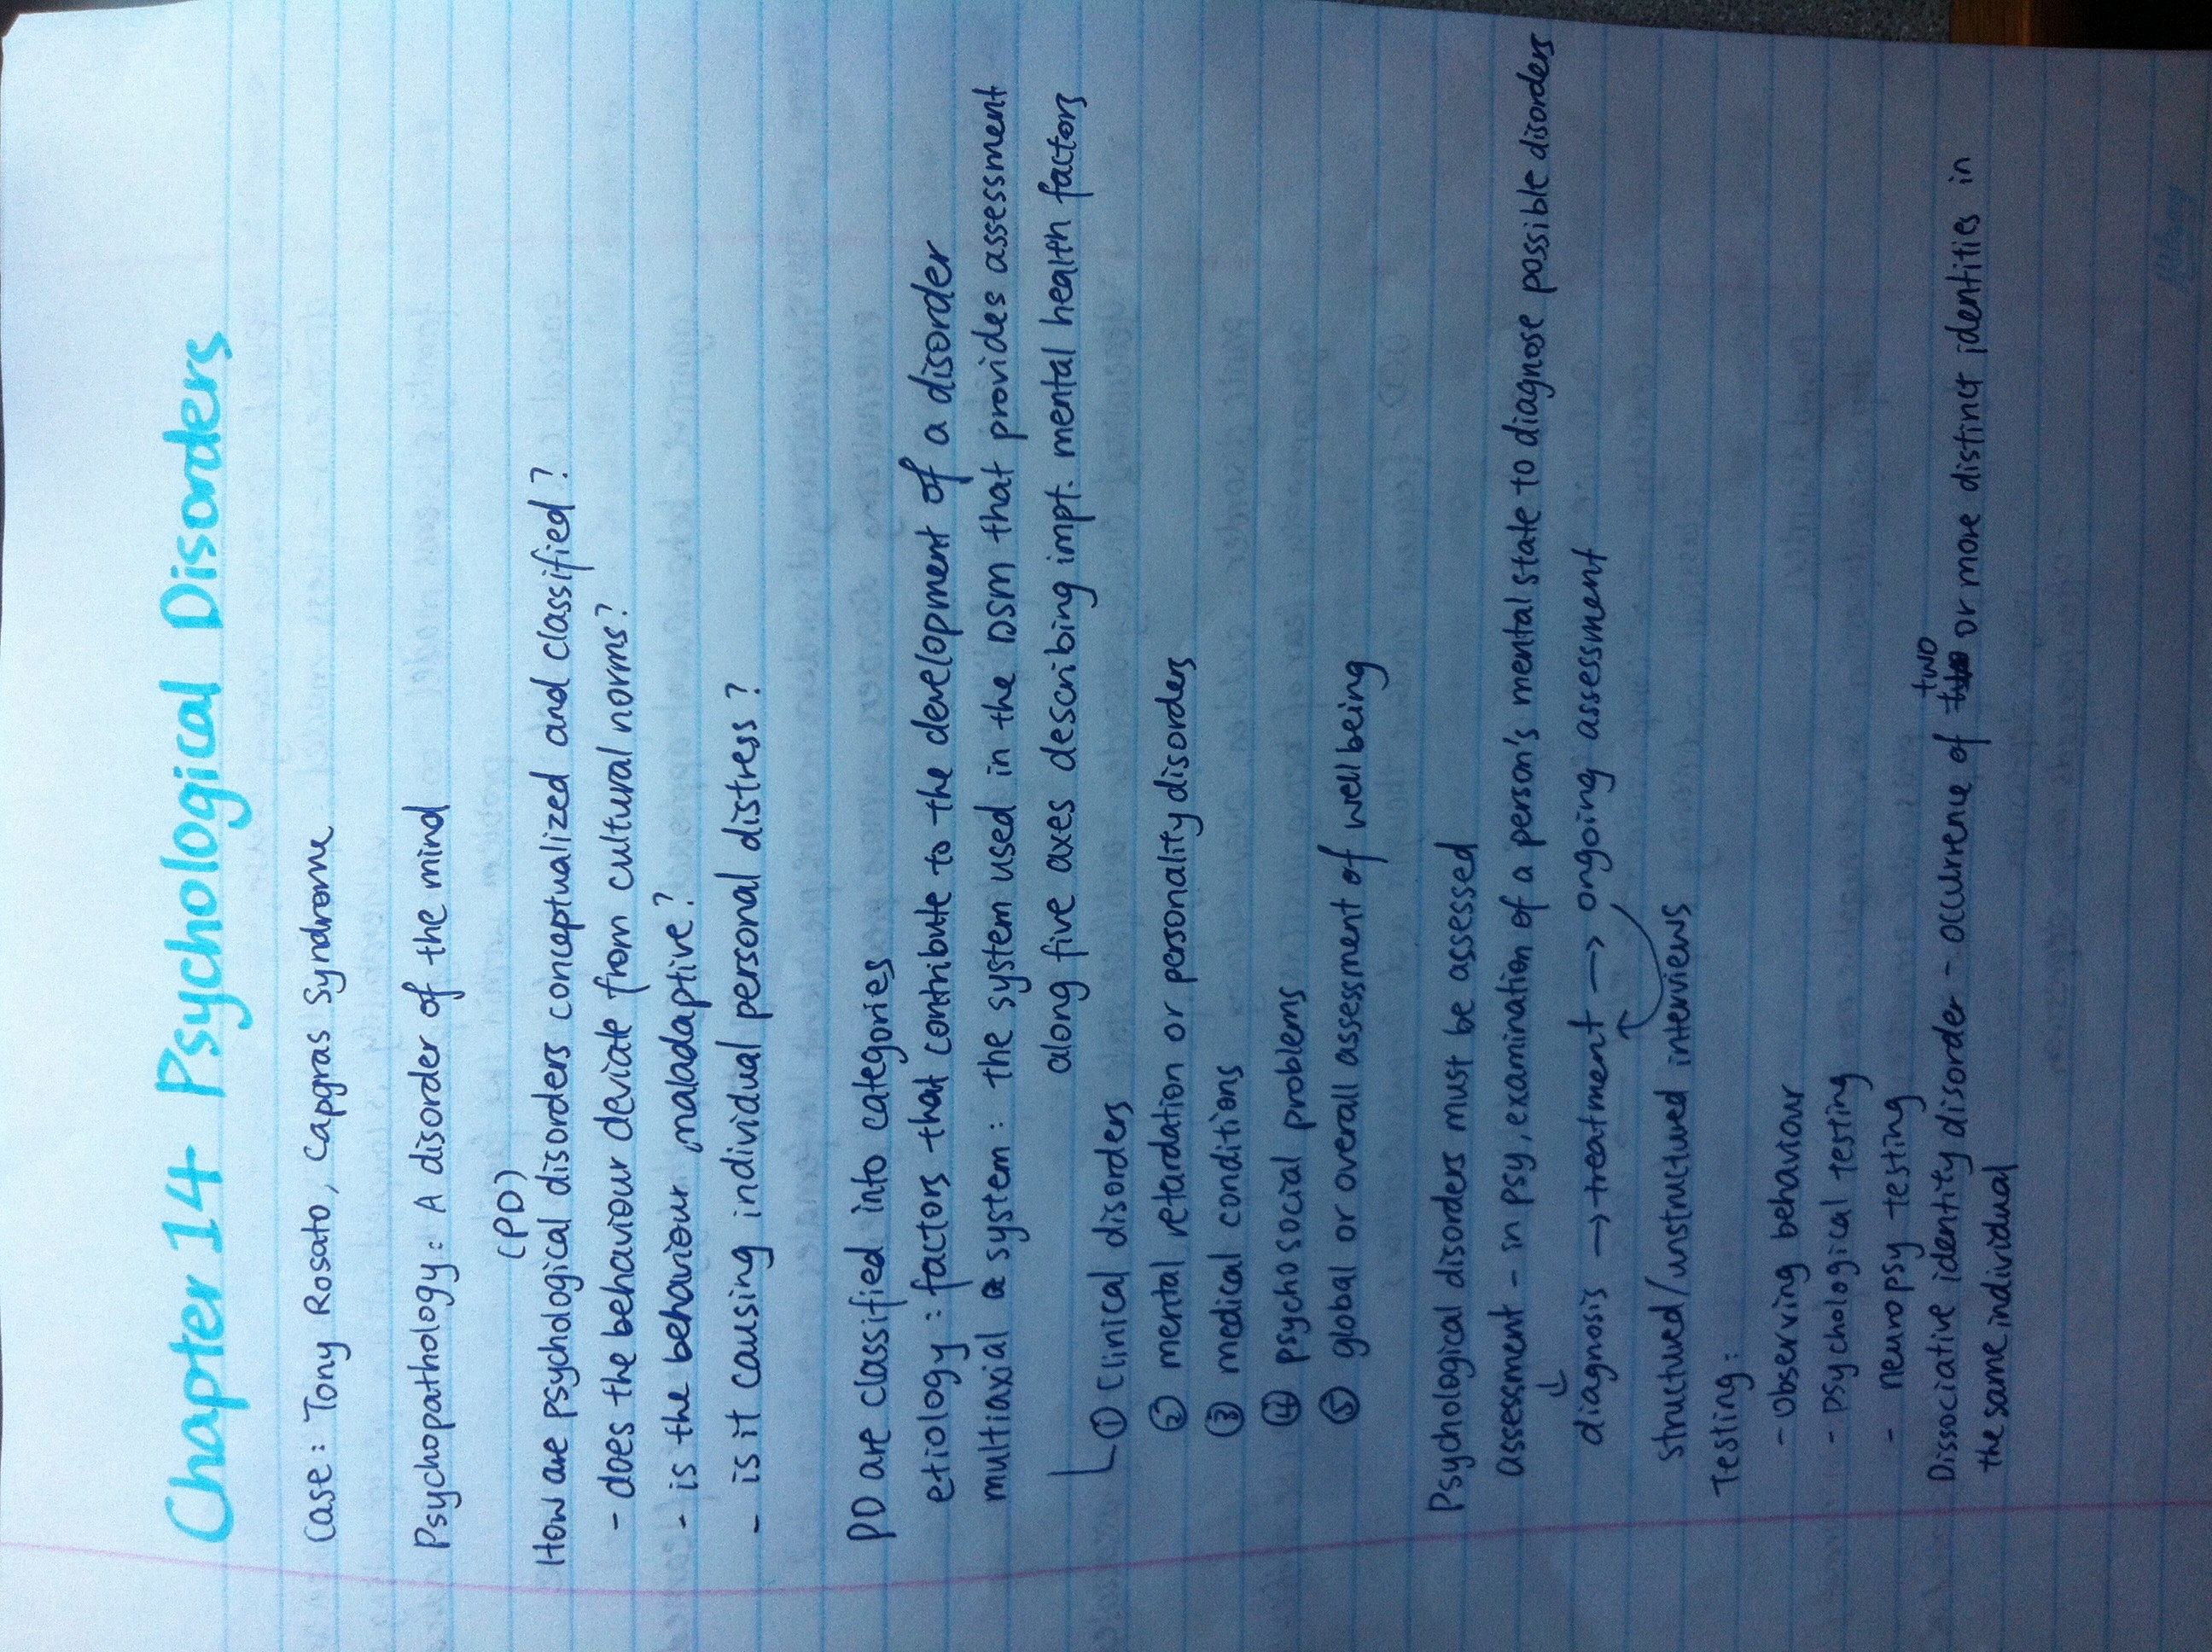 Chapter 14 - Psychological Disorders
Case: Tony Rosato, Capgras Syndrome
Psychopathology: A disorder of the mind
(PD)
How are psychological disorders conceptualized and classified?
- does the behaviour deviate from cultural norms?
- is the behaviour maladaptive?
- is it causing individual personal distress?
PD are classified into categories
etiology: factors that contribute to the development of a disorder
multiaxial system: the system used in the DSM that provides assessment
along five axes describing impt. mental health factors
① clinical disorders
② mental retardation or personality disorders
③ medical conditions
④ psychosocial problems
⑤ global or overall assessment of well being
Psychological disorders must be assessed
assessment - in psy, examination of a person's mental state to diagnose possible disorders
diagnosis → treatment → ongoing assessment
structured/unstructured interviews
Testing:
- observing behaviour
- psychological testing
- neuropsy testing
two
Dissociative identity disorder - occurrence of or more distinct identities in
the same individual